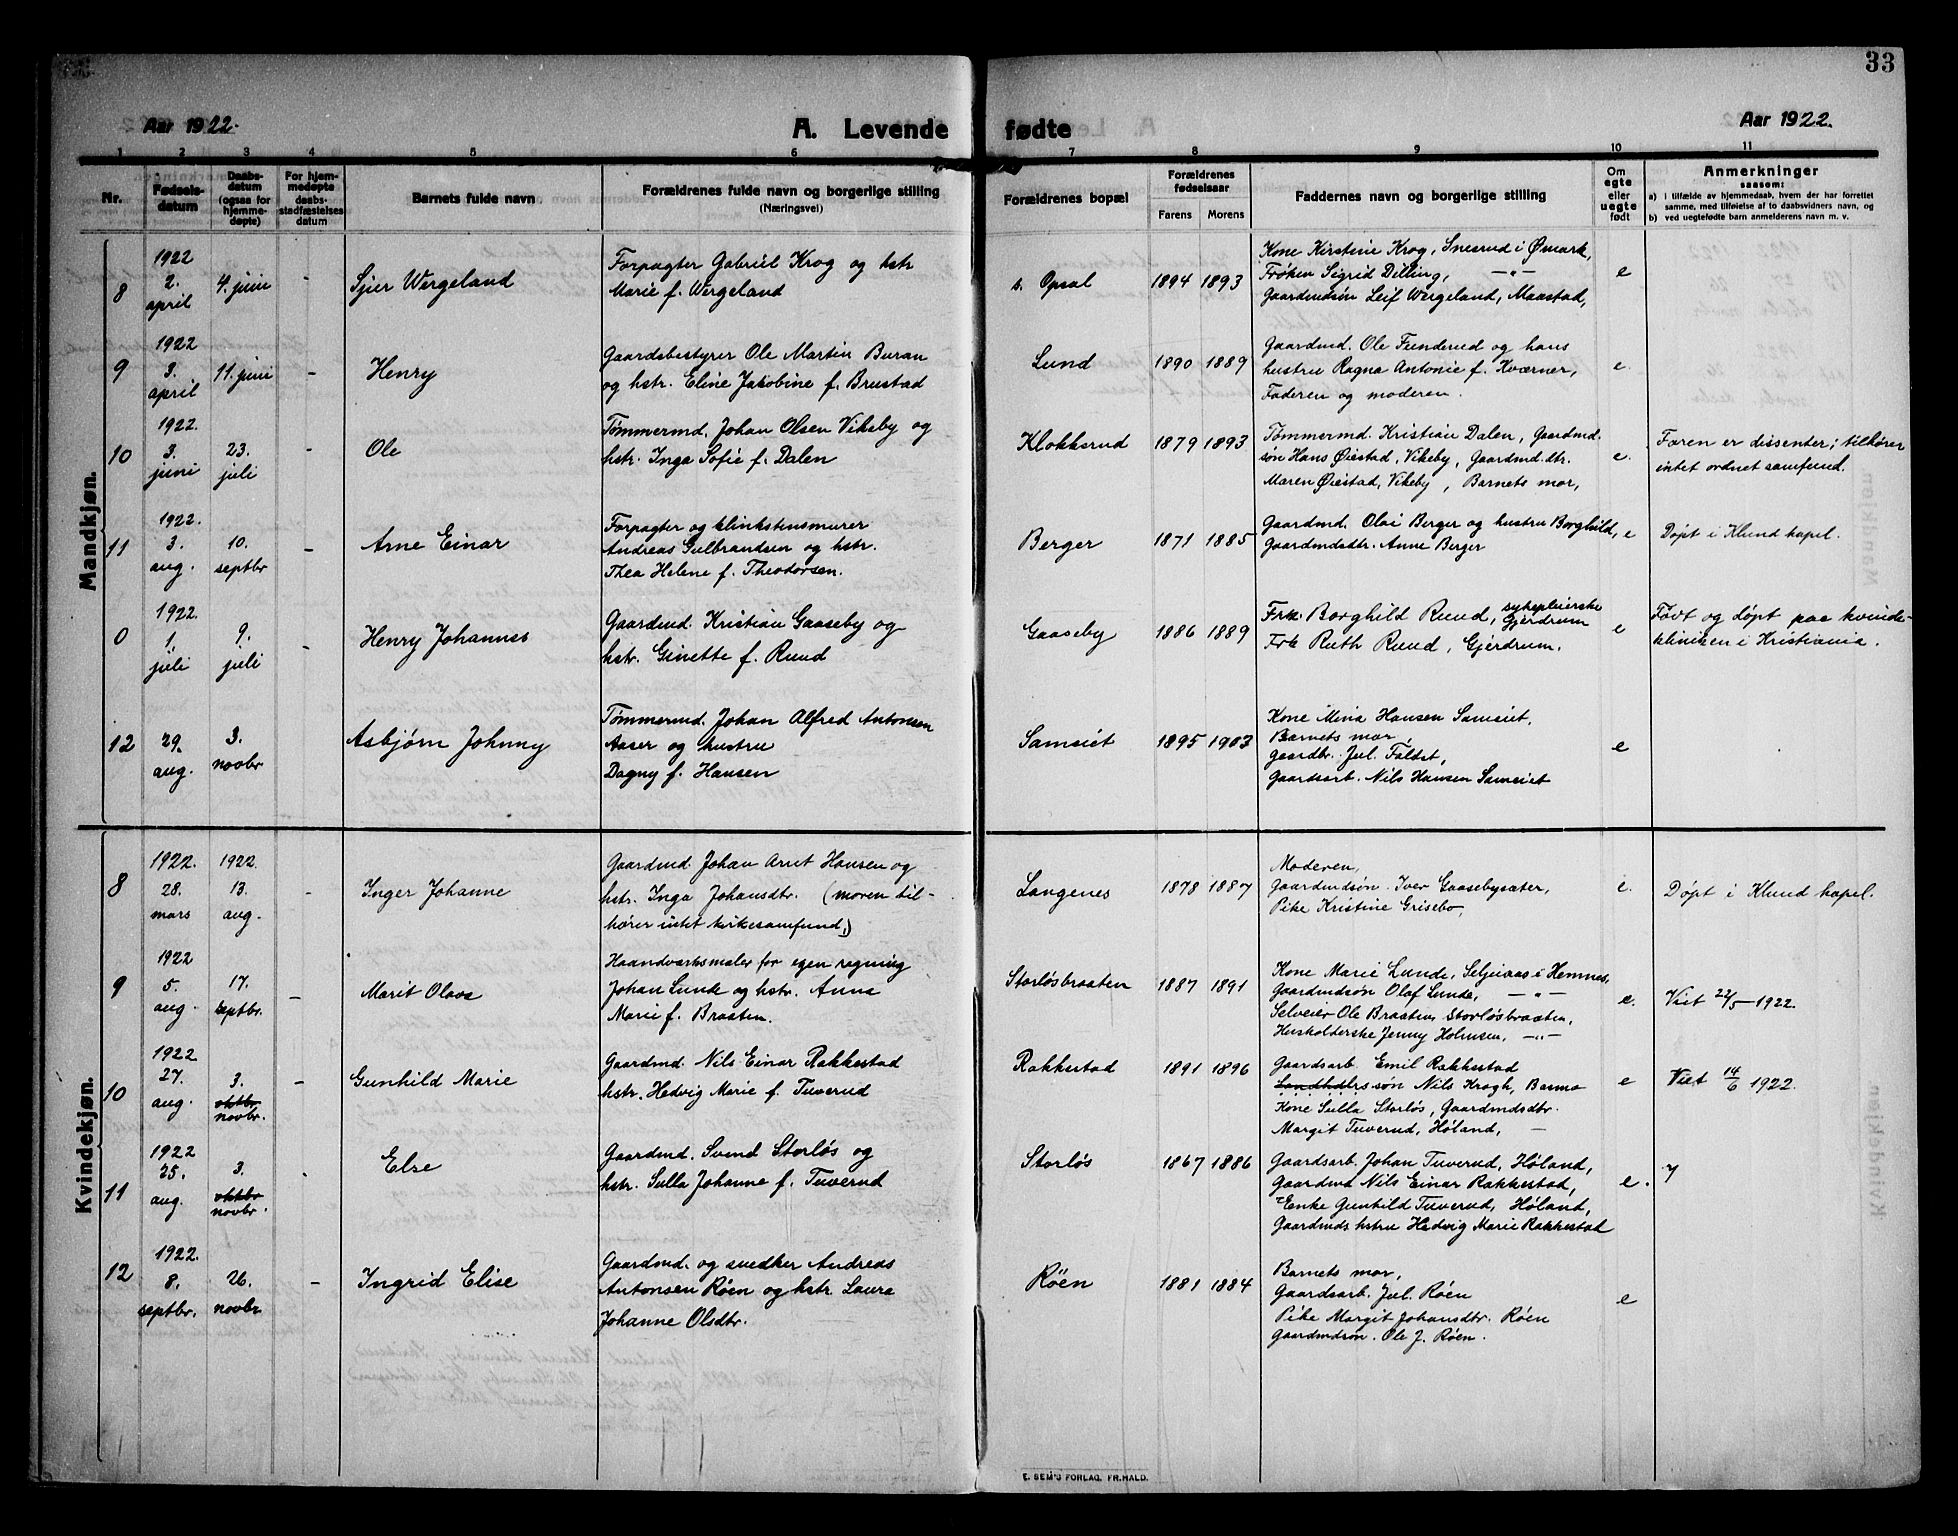 33
Aar 1922.
A. Levende
fødte
Aar 1922.
1 2 3 4 5 6 7 8 9 10 11
Nr.
Fødsels-
datum
Daabs-
datum
(ogsaa for
hjemme-
døpte)
For hjem-
medøpte
daabs-
stadfæstelses
datum
Barnets fulde navn
Forældrenes fulde navn og borgerlige stilling
(Næringsvei)
Forældrenes bopæl
Forældrenes
fødselsaar
Farens Morens
Faddernes navn og borgerlige stilling
Om
egte
eller
uegte
født
Anmerkninger
saasom:
a) i tilfælde av hjemmedaab, hvem der har forrettet
samme, med tilføielse af to daabsvidners navn, og
b) ved uegtefødte barn anmelderens navn m. v.
Mandkjøn.
8
1922
2.
april
4. juni
-
Sjur Wergeland
Forpagter Gabriel Krog og hstr
Marie f. Wergeland
s. Opsal
1894 1893
Kone Kirstine Krog, Snesrud i Ømark,
Frøken Sigrid Dilling, —"—
Gaardmdsøn Leif Wergeland, Maastad,
e
9
1922
3.
april
11. juni
-
Henry
Gaardsbestyrer Ole Martin Buran
og hstr. Eline Jakobine f. Brustad
Lund
1890 1889
Gaardmd. Ole Funderud og hans
hustru Ragna Antonie f. Kværner,
Faderen og moderen.
e.
10
1922.
3.
juni
23.
juli
-
Ole
Tømmermd. Johan Olsen Vikeby og
hstr. Inga Sofie f. Dalen
Klokkerud
1879 1893
Tømmermd. Kristian Dalen, Gaardmd.
søn Hans Øiestad, Vikeby, Gaardmd.dtr.
Maren Øiestad, Vikeby, Barnets mor,
e.
Faren er dissenter; tilhører
intet ordnet samfund.
11
1922.
3.
aug.
10.
septbr
-
Arne Einar
Forpagter og klinkstensmurer
Andreas Gulbrandsen og hstr.
Thea Helene f. Theodorsen.
Berger
1871 1885
Gaardmd. Olai Berger og hustru Borghild,
Gaardmdsdtr. Anne Berger
e
Døpt i Klund kapel.
0
1922.
1.
juli
9.
juli
-
Henry Johannes
Gaardmd. Kristian Gaaseby og
hstr. Ginette f. Ruud
Gaaseby
1886 1889
Frk. Borghild Ruud, sykepleierske
Gjerdrum
Frk Ruth Ruud, Gjerdrum.
e
Født og døpt paa kvinde-
klinikken i Kristiania.
12
29.
aug.
3.
novbr
-
Asbjørn Johnny
Tømmermd. Johan Alfred Antonsen
Aaser og hustru
Dagny f. Hansen
Samsiet
1895 1903
Kone Mina Hansen Samsiet,
Barnets mor,
gaardbr. Jul. Faldet,
Gaardsarb. Nils Hansen Samsiet
e
Kvindekjøn.
8
1922.
28.
mars
1922.
13.
aug.
-
Inger Johanne
Gaardmd. Johan Arnt Hansen og
hstr. Inga Johansdtr. (moren til-
hører intet kirkesamfund.)
Langenes
1878 1887
Moderen,
Gaardmdsøn. Iver Gaasebysæter,
Pike Kristine Grisebo,
e.
Døpt i Klund kapel.
9
1922
5.
aug.
17.
septbr.
-
Marit Olava
Haandverksmaler for egen regning
Johan Lunde og hstr. Anna
Marie f. Braaten.
Storløsbraaten
1887 1891
Kone Marie Lunde, Seljeaas i Hemnes,
Gaardmdsøn Olaf Lunde, —"—
Selveier Ole Braaten, Storløsbraaten,
Husholderske Jenny Holmsen, —"—
e.
Viet 22/5 - 1922.
10
1922
27.
aug.
3.
oktbr
novbr.
-
Gunhild Marie
Gaardmd. Nils Einar Rakkestad
hstr. Hedvig Marie f. Tuverud
Rakkestad
1891 1896
Gaardsarb. Emil Rakkestad
Landhdlrssøn Nils Krogh, Basmo
Kone Sulla Storløs, Gaardmdsdtr.
Margit Tuverud, Høland, —
e
Viet 14/6 1922.
11
1922
25.
aug.
3.
oktbr
novbr.
-
Else
Gaardmd. Svend Storløs og
hstr. Sulla Johanne f. Tuverud
Storløs
1867 1886
Gaardsarb. Johan Tuverud, Høland,
Gaardmd Nils Einar Rakkestad,
Enke Gunhild Tuverud, Høland,
Gaardmds hstru Hedvig Marie Rakkestad
e.
7
12
1922.
8.
septbr.
26.
novbr.
-
Ingrid Elise
Gaardmd. og snedker Andreas
Antonsen Røen og hstr. Laura
Johanne Olsdtr.
Røen
1881 1884
Barnets mor,
Gaardsarb. Jul. Røen
Pike Margit Johansdtr. Røen
Gaardmdsøn. Ole J. Røen.
e
E. SEM'S FORLAG, FR.HALD.